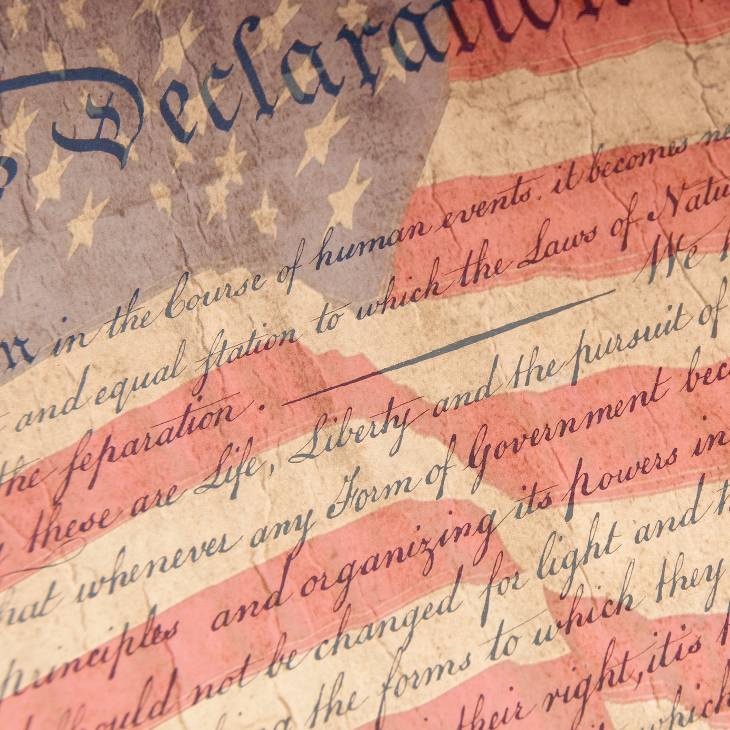 Declaration
n in the Course of human events. it becomes ne
and equal ſtation to which the Laws of Natu
the ſeparation. We h
these are Life, Liberty and the pursuit of
hat whenever any Form of Government bec
principles and organizing its powers in
should not be changed for light and t
the forms to which they
their right, it is
which